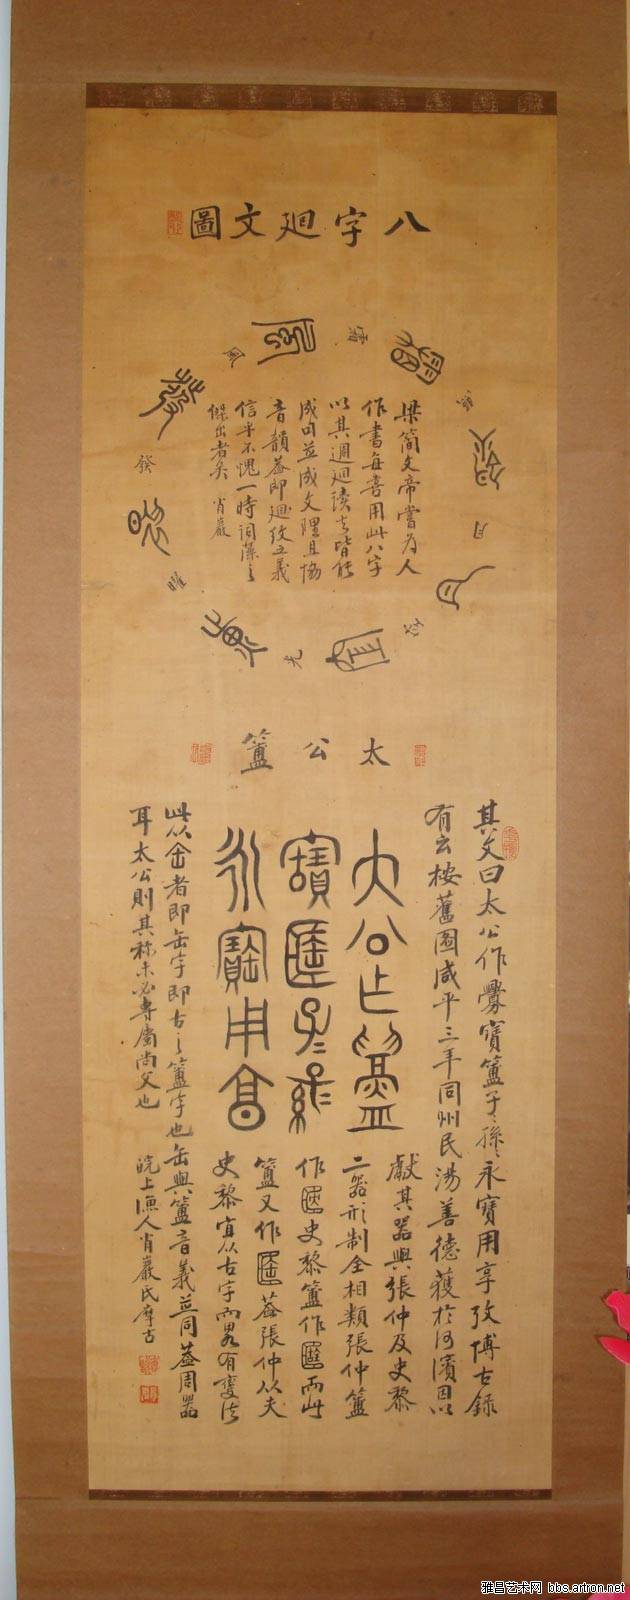 八字廻文圖
梁簡文帝嘗為人
作書每喜用此八字
以其週迴读之皆能
成句並成文理且協
音韻蓋即廻纹五義
信乎不愧一時詞藻之
傑出者矣 肖巖
月
光
發
風
太公簠
其文曰太公作鑄寶簠子〻孫〻永寶用享攷博古錄
有云按舊圖咸平三年同州民湯善德獲於河濱因以
獻其器與張仲及史黎
二器形制全相類張仲簠
史黎簠作
而此
簠又作
蓋張仲从夫
史黎宜从古字而畧有變法
此从缶者即缶字即古之簠字也缶與簠音義並同蓋周器
耳太公則其称未必專屬尚父也
皖上漁人肖巖氏摩古
雅昌艺术网 bbs.artron.net